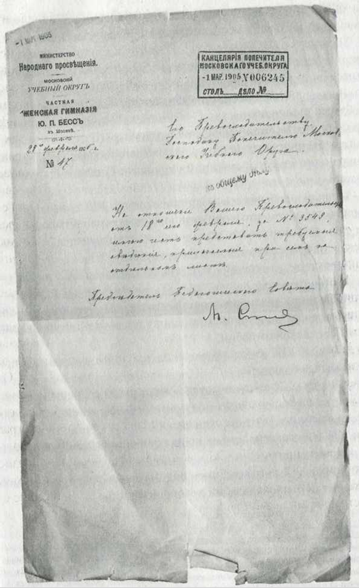 -1 МАР 1905
МИНИСТЕРСТВО
Народнаго просвѣщенія.
МОСКОВСКІЙ
УЧЕБНЫЙ ОКРУГЪ
ЧАСТНАЯ
ЖЕНСКАЯ ГИМНАЗІЯ
Ю. П. БЕССЪ
въ Москвѣ.
28го февраля 1905 г.
№ 47
КАНЦЕЛЯРІЯ ПОПЕЧИТЕЛЯ
МОСКОВСКАГО УЧЕБ. ОКРУГА
-1 МАР. 1905 V006245
СТОЛЪ ДѢЛО №
Его Превосходительству,
Господину Попечителю Москов
скаго Учебнаго Округа.
по общему
На отношеніе Вашего Превосходительства
отъ 18го февраля, за № 3549,
имѣю честь представить требуемыя
свѣдѣнія, приложенныя при семъ на
отдѣльномъ листѣ.
Предсѣдатель Педагогическаго Совѣта